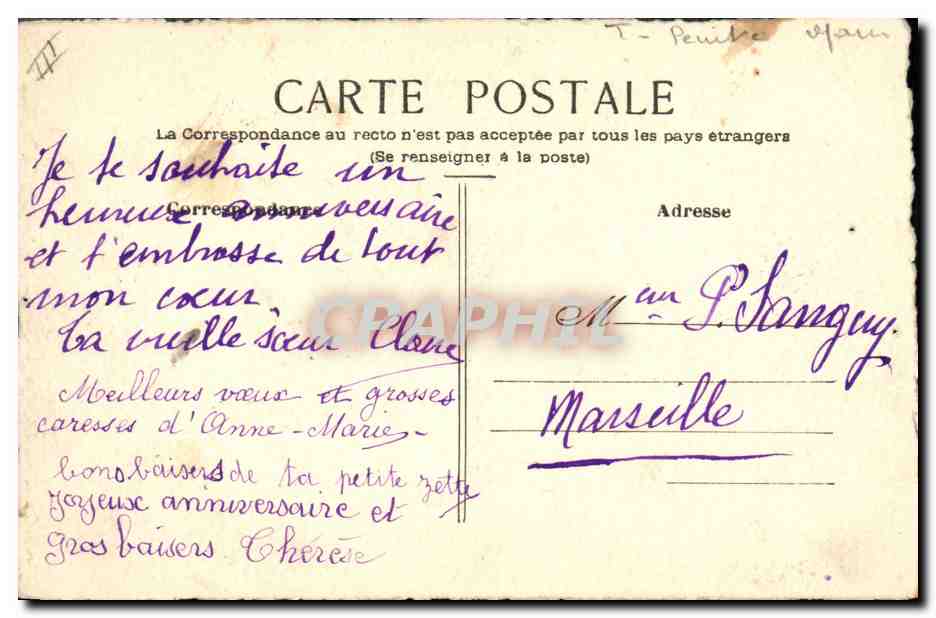 CARTE POSTALE
La Correspondance au recto n'est pas acceptée par tous les pays étrangers
(Se renseigner à la poste)
Correspondance
Je te souhaite un
heureux anniversaire
et t'embrasse de tout
mon cœur.
Ta vieille sœur Claire
Meilleurs vœux et grosses
caresses d'Anne-Marie-
bons baisers de ta petite zette
Joyeux anniversaire et
gros baisers Thérèse
Adresse
Meur P. Sanguy.
Marseille
CPAPHIL